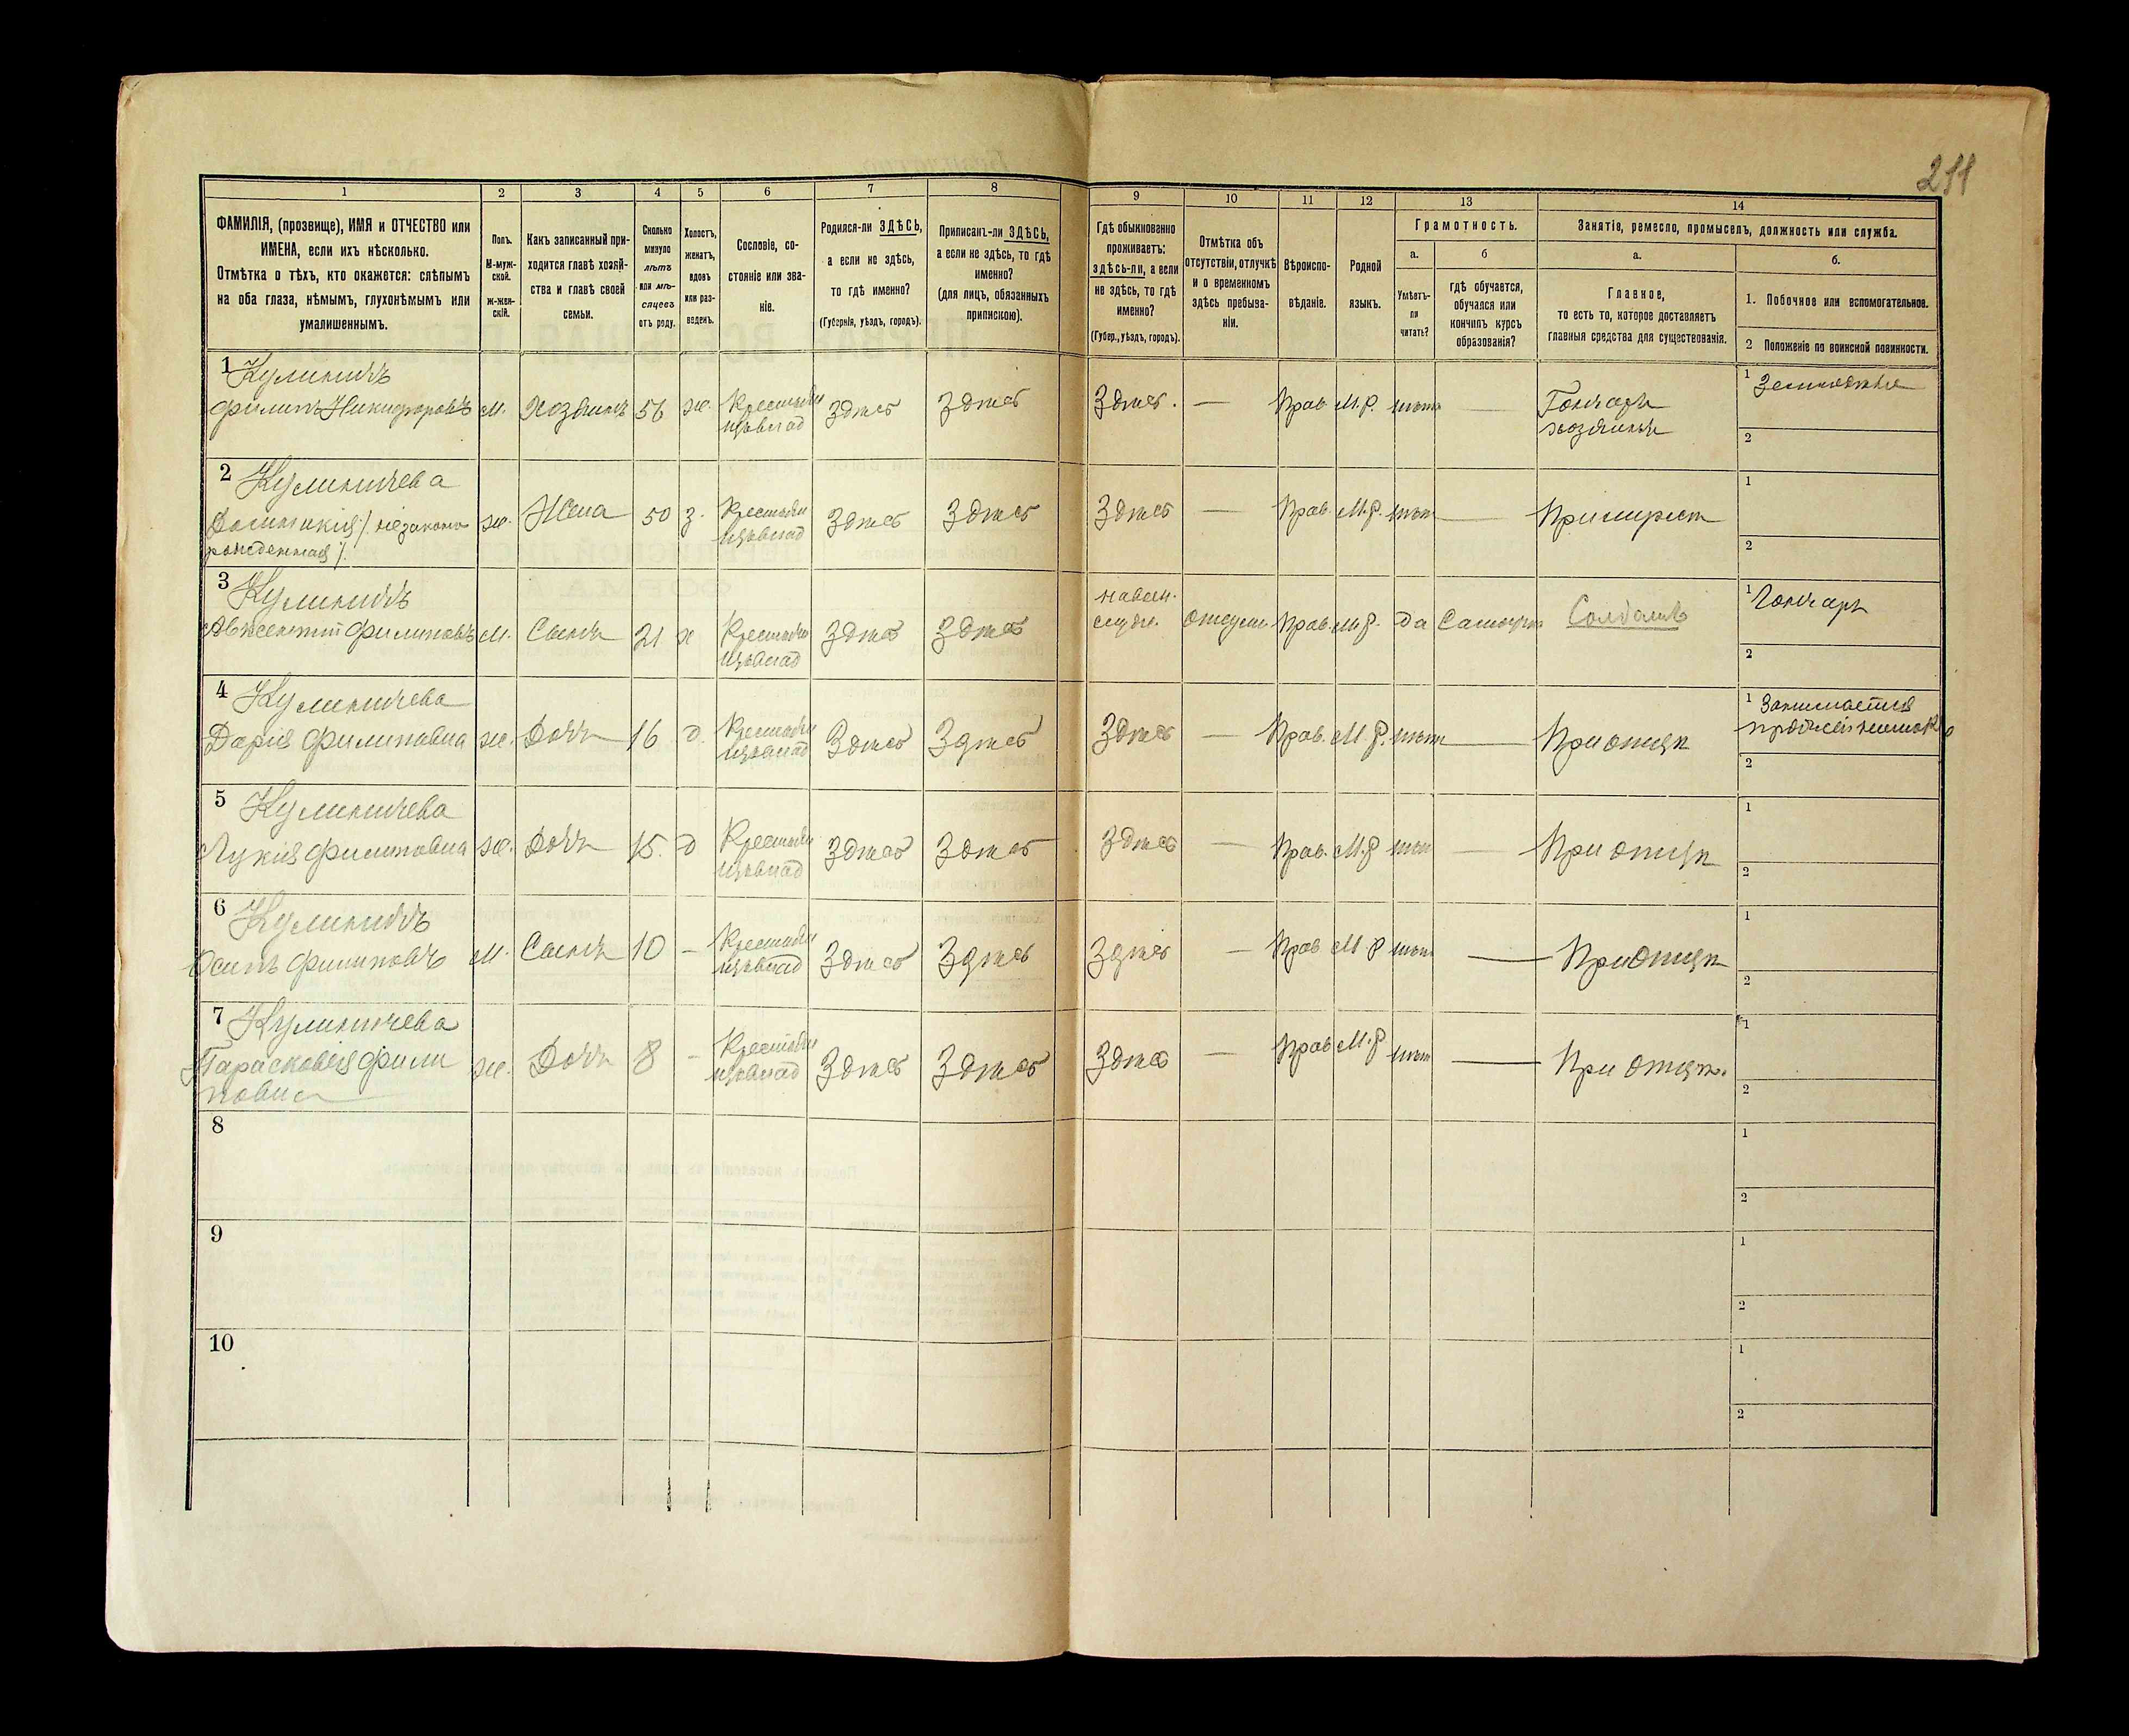 211
1
2
3
4
5
6
7
8
9
10
11
12
13
14
ФАМИЛІЯ, (прозвище), ИМЯ и ОТЧЕСТВО или
ИМЕНА, если ихъ нѣсколько.
Отмѣтка о тѣхъ, кто окажется: слѣпымъ
на оба глаза, нѣмымъ, глухонѣмымъ или
умалишеннымъ.
Полъ.
М-муж-
ской.
ж-жен-
скій.
Какъ записанный при-
ходится главѣ хозяй-
ства и главѣ своей
семьи.
Сколько
минуло
лѣтъ
или мѣ-
сяцевъ
отъ роду.
Холостъ,
женатъ,
вдовъ
или раз-
веденъ.
Сословіе, со-
стояніе или зва-
ніе.
Родился-ли ЗДѢСЬ,
а если не здѣсь,
то гдѣ именно?
(Губернія, уѣздъ, городъ).
Приписанъ-ли ЗДѢСЬ,
а если не здѣсь, то гдѣ
именно?
(для лицъ, обязанныхъ
припискою).
Гдѣ обыкновенно
проживаетъ:
здѣсь-ли, а если
не здѣсь, то гдѣ
именно?
(Губер., уѣздъ, городъ).
Отмѣтка объ
отсутствіи, отлучкѣ
и о временномъ
здѣсь пребыва-
ніи.
Вѣроиспо-
вѣданіе.
Родной
языкъ.
Грамотность.
а.
Умѣетъ-
ли
читать?
б
гдѣ обучается,
обучался или
кончилъ курсъ
образованія?
Занятіе, ремесло, промыселъ, должность или служба.
а.
Главное,
то есть то, которое доставляетъ
главныя средства для существованія.
б.
1. Побочное или вспомогательное.
2 Положеніе по воинской повинности.
1 Кулиничъ
Филипъ Никифоровъ м. Хозяинъ 56 ж. Крестьян Здѣсь Здѣсь Здѣсь. — Прав. М.р. нѣтъ — Гончаръ 1 Земледѣліе
из владѣ хозяинъ
2
2 Кулиничева 1
/незаконно ж. Жена 50 з. Крестьян Здѣсь Здѣсь Здѣсь — Прав. М.р. нѣтъ — При
рожденная/. из влад
2
3 Кулиничъ на воен. 1 Гончаръ
Авксентий Филиповъ м. Сынъ 21 х Крестьян Здѣсь Здѣсь служ. отсут. Прав. м.р. да Самоучк Солдатъ
из влад
2
4 Кулиничева 1 Занимается
Дария Филиповна ж. Дочь 16 д. Крестьян Здѣсь Здѣсь Здѣсь — Прав. М.р. нѣтъ — При отцѣ
из влад
2
5 Кулиничева 1
Лукія Филиповна ж. Дочь 15. д Крестьян Здѣсь Здѣсь Здѣсь — Прав. М.р нѣтъ — При отцѣ
из влад
2
6 Кулиничъ 1
Осипъ Филиповъ м. Сынъ 10 – Крестьян Здѣсь Здѣсь Здѣсь — Прав М р нѣтъ — При отцѣ
из влад
2
7 Кулиничева 1
Парасковія Фили ж. Дочь 8 – Крестьян Здѣсь Здѣсь Здѣсь — Прав М.р нѣтъ — При отцѣ.
повна из влад
2
8
1
2
9
1
2
10
1
2